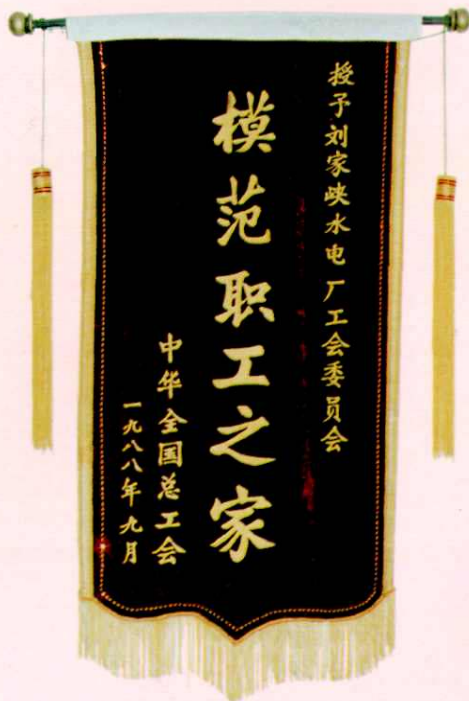 授予刘家峡水电厂工会委员会
模范职工之家
中华全国总工会
一九八八年九月